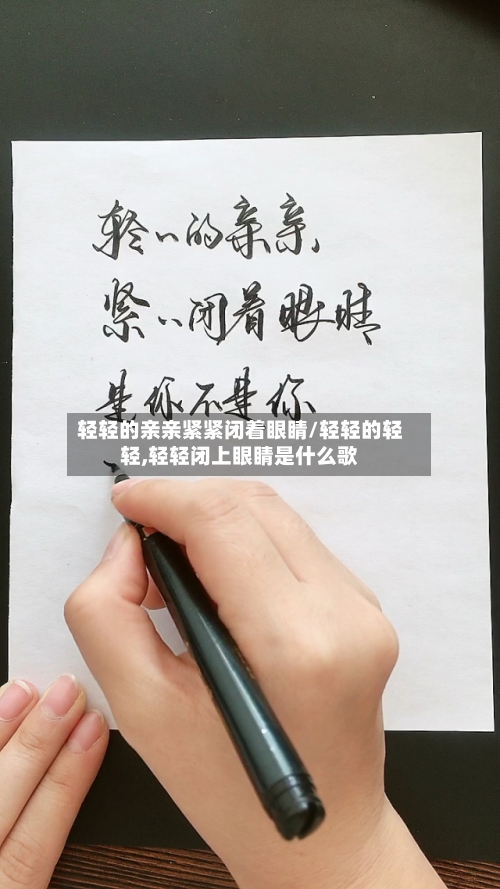 轻〃的亲亲,
紧〃闭着眼睛
是你不是你
轻轻的亲亲紧紧闭着眼睛/轻轻的轻
轻,轻轻闭上眼睛是什么歌